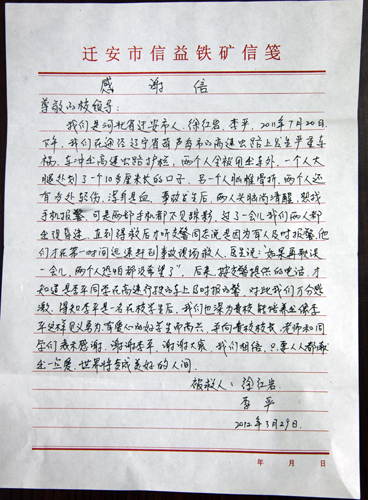 迁安市信益铁矿信笺
感谢信
尊敬的校领导：
我们是河北省迁安市人，徐红岩、李平，2011年7月20日
下午，我们在途经辽宁省葫芦岛市的高速公路上发生严重车
祸，车冲出高速公路护栏，两个人全被甩出车外，一个人大
腿处划了一个10多厘米长的口子，另一个人脑椎骨折，两个人还
有多处轻伤，浑身是血，事故发生后，两人关脑尚清醒，想找
手机报警，可是两部手机都不见踪影，过了一会儿我们两人都
出现昏迷，直到得救后才听交警同志说是因为有人及时报警，他
们才在第一时间迅速赶到事故现场救人，医生说："如果再耽误
一会儿，两个人恐怕都没希望了"。后来，按交警提供的电话，才
知道是李平同学在高速行驶的车上及时报的警，对此我们万分感
激，得知李平是一名在校学生后，我们也深为贵校能培养出像李
平这样见义勇为有爱心的好学生而高兴，并向贵校校长、老师和同
学们表示感谢，谢谢李平，谢谢大家，我们相信，只要人人都献
出一点爱，世界将变成美好的人间。
被救人：徐红岩
李平
2012年3月29日
年 月 日